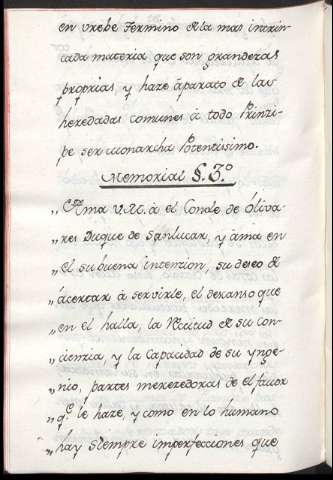 en vrebe Termino de la mas intrin-
cada materia que son grandezas
proprias, y haze aparato de las
heredadas comunes à todo Prinzi-
pe ser Monarcha Potentisimo.
Memorial §. 3.º
„ Ama V. M. à el Conde de Oliva-
„ res Duque de Sanlucar, y àma en
„ el su buena intenzion, su deseo de
„ àcertar à servirle, el descanso que
„ en el halla, la Rectitud de su con-
„ cienzia, y la Capacidad de su Ynge-
„ nio, partes merezedoras de el favor
„ q.e le haze, y como en lo humano
„ hay siempre imperfecciones que